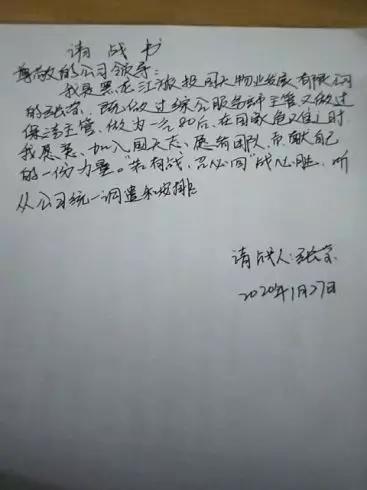 请战书
尊敬的公司领导:
我是黑龙江
的张荣,既做过综合服务部主管又做过
保洁主管,做为一名80后,在国家危难之时
我愿意,加入 团队,贡献自己
的一份力量。"若有战,召必回"战必胜,听
从公司统一调遣和安排
请战人:张荣
2020年1月27日